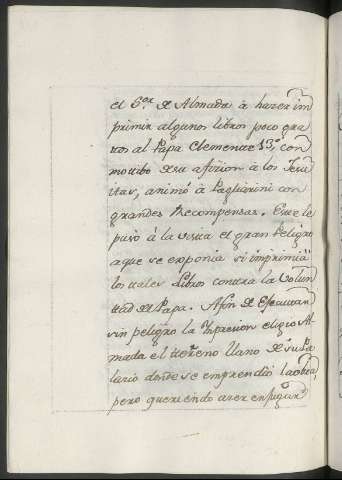 el S.or de Almada à hazer im
primir algunos libros poco gra
tos al Papa Clemente 13,º con
motibo de su afizion à los Jesu
itas, animó à Pagliarini con
grandes Recompensas. Este le
puso à la vista el gran Peligro
a que se exponia si imprimia
los tales Libros contra la volun
tad del Papa. Afin de Efecutar
sin peligro la Impresion eligio Al
mada el terreno llano de su Pa
lacio donde se emprendió la obra,
pero queriendo aver en